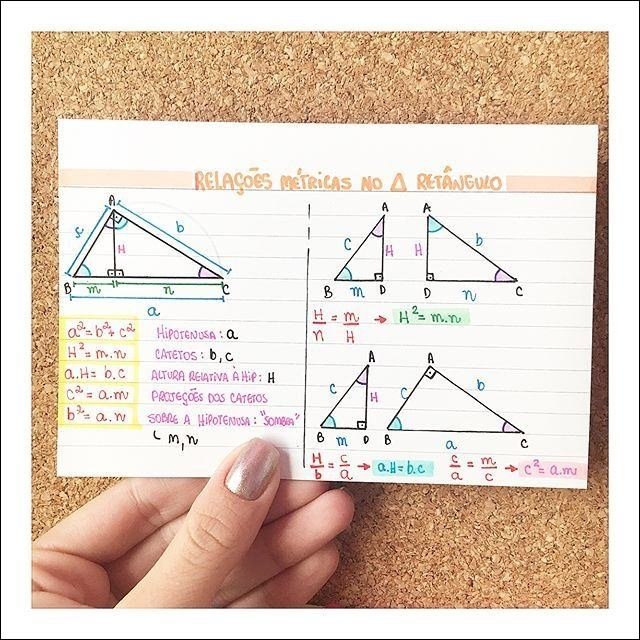 RELAÇÕES MÉTRICAS NO Δ RETÂNGULO
A
c
b
H
B
m
n
C
a
a² = b² + c²
H² = m.n
a.H = b.c
c² = a.m
b² = a.n
HIPOTENUSA: a
CATETOS: b, c
ALTURA RELATIVA À HIP: H
PROJEÇÕES DOS CATETOS
SOBRE A HIPOTENUSA: "SOMBRA"
m, n
A
c
H
B
m
D
A
H
b
D
n
C
H/n = m/H → H² = m.n
A
c
H
B
m
D
A
c
b
B
a
C
H/b = c/a → a.H = b.c
c/a = m/c → c² = a.m